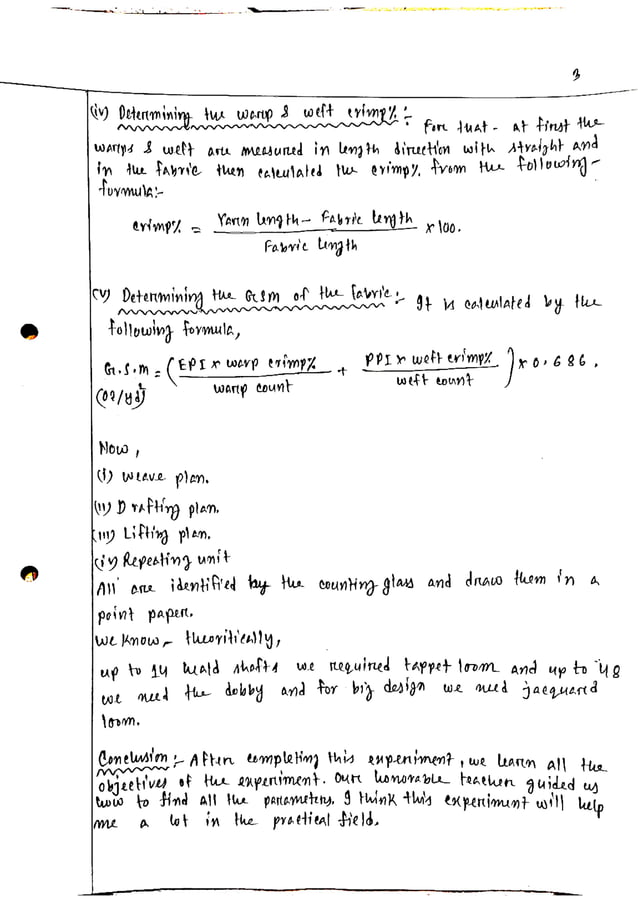 3
(iv) Determining the warp & weft crimp% :-
For that - at first the
warps & weft are measured in length direction with straight and
in the fabric then calculated the crimp% from the following-
formula:-
crimp% = Yarn length - Fabric length / Fabric length × 100.
(v) Determining the GSM of the fabric :- It is calculated by the
following formula,
G.S.M = ( EPI × warp crimp% / warp count + PPI × weft crimp% / weft count ) × 0.686.
(oz/yd²)
Now,
(i) weave plan.
(ii) Drafting plan.
(iii) Lifting plan.
(iv) Repeating unit
All are identified by the counting glass and draw them in a
point paper.
We know - theoritically,
up to 14 heald shafts we required tappet loom and up to 48
we need the dobby and for big design we need jacquard
loom.
Conclusion :- After completing this experiment, we learn all the
objectives of the experiment. Our honorable teacher guided us
how to find all the parameters. I think this experiment will help
me a lot in the practical field.